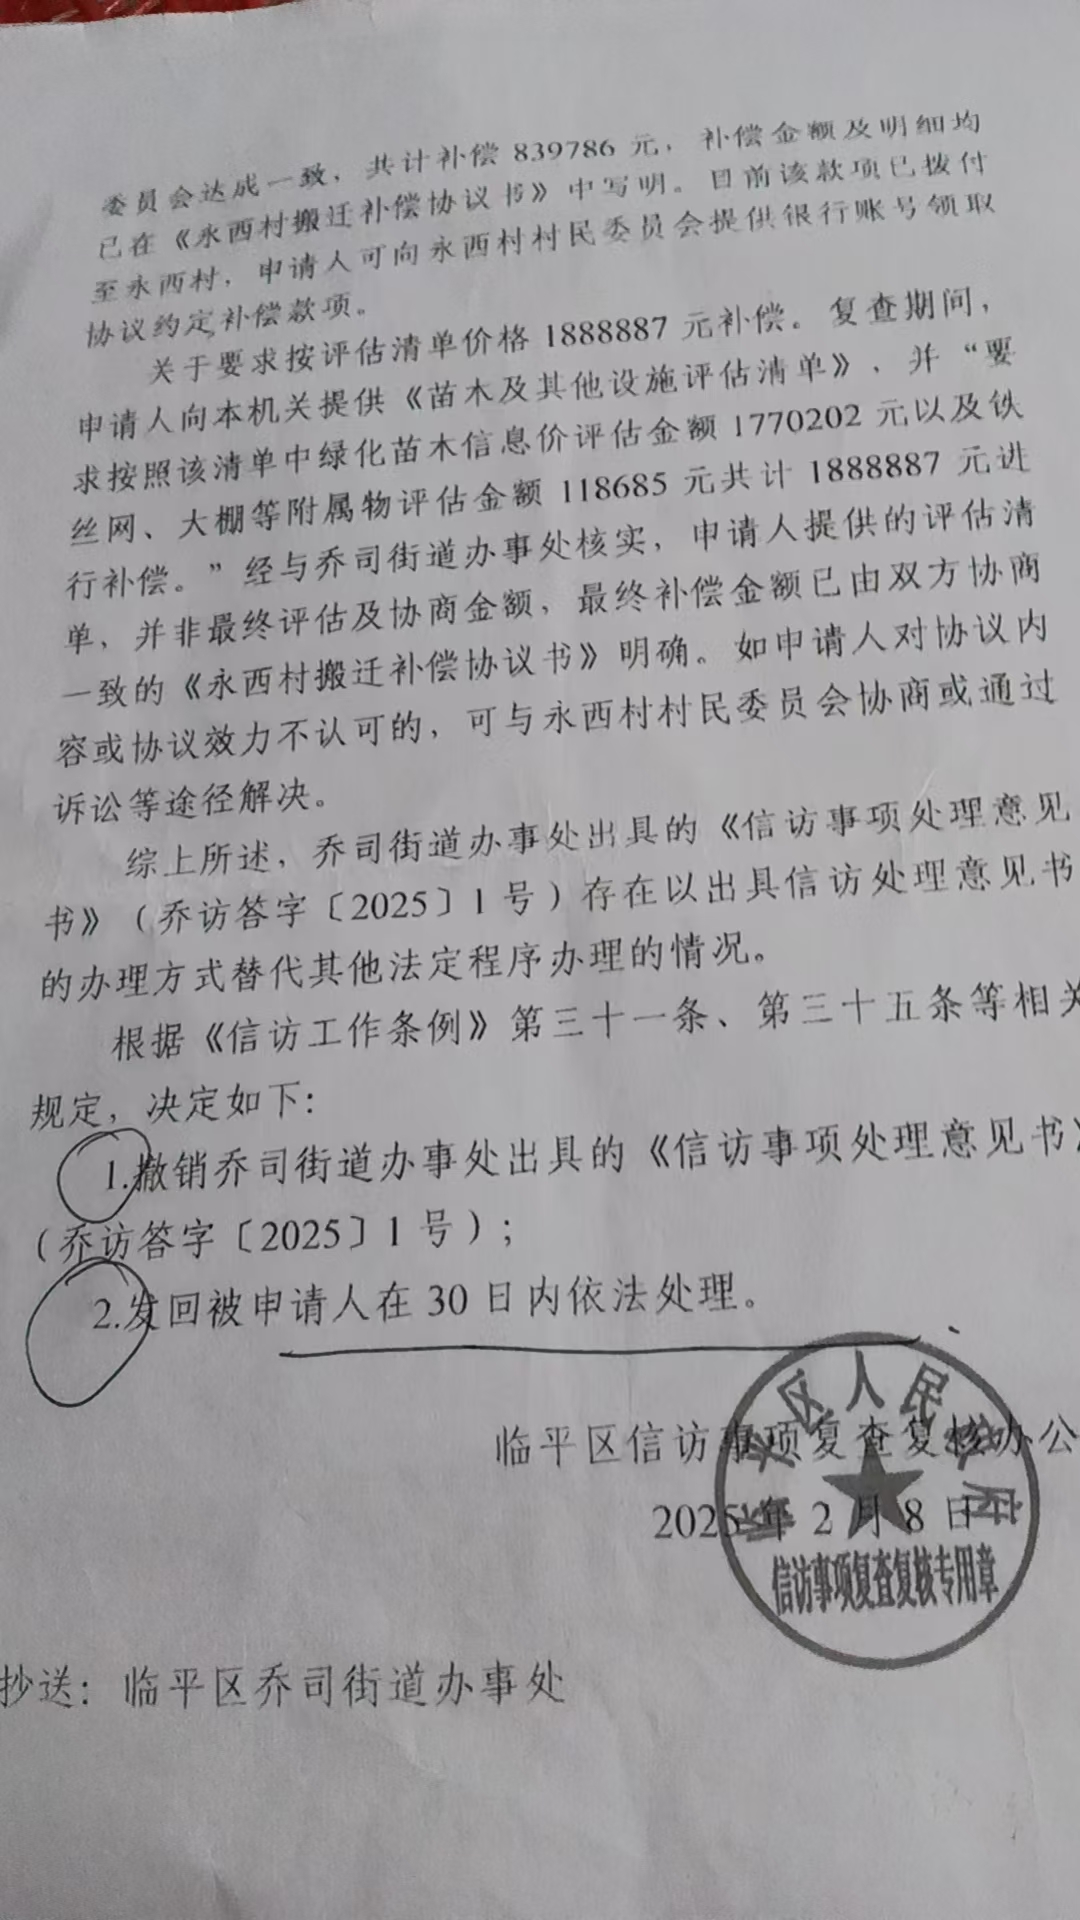 委员会达成一致，共计补偿 839786 元，补偿金额及明细均
已在《永西村搬迁补偿协议书》中写明。目前该款项已拨付
至永西村，申请人可向永西村村民委员会提供银行账号领取
协议约定补偿款项。
关于要求按评估清单价格 1888887 元补偿。复查期间，
申请人向本机关提供《苗木及其他设施评估清单》，并“要
求按照该清单中绿化苗木信息价评估金额 1770202 元以及铁
丝网、大棚等附属物评估金额 118685 元共计 1888887 元进
行补偿。”经与乔司街道办事处核实，申请人提供的评估清
单，并非最终评估及协商金额，最终补偿金额已由双方协商
一致的《永西村搬迁补偿协议书》明确。如申请人对协议内
容或协议效力不认可的，可与永西村村民委员会协商或通过
诉讼等途径解决。
综上所述，乔司街道办事处出具的《信访事项处理意见
书》（乔访答字〔2025〕1 号）存在以出具信访处理意见书
的办理方式替代其他法定程序办理的情况。
根据《信访工作条例》第三十一条、第三十五条等相关
规定，决定如下：
1.撤销乔司街道办事处出具的《信访事项处理意见书》
（乔访答字〔2025〕1 号）；
2.发回被申请人在 30 日内依法处理。
临平区信访事项复查复核办公
2025 年 2 月 8 日
区人民政府
信访事项复查复核专用章
抄送：临平区乔司街道办事处